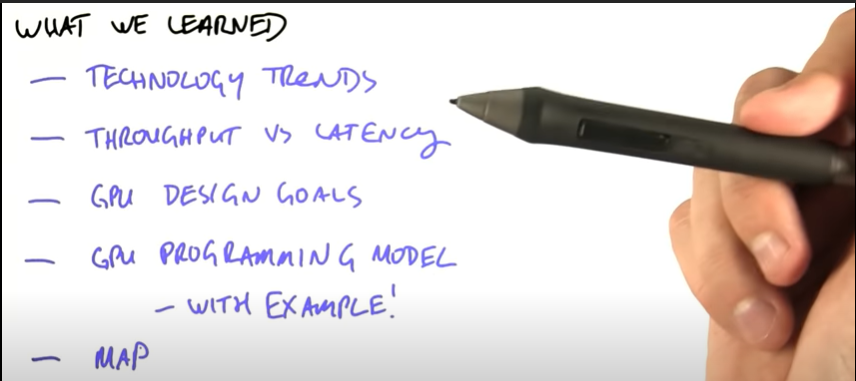 WHAT WE LEARNED
— TECHNOLOGY TRENDS
— THROUGHPUT VS LATENCY
— GPU DESIGN GOALS
— GPU PROGRAMMING MODEL
— WITH EXAMPLE!
— MAP